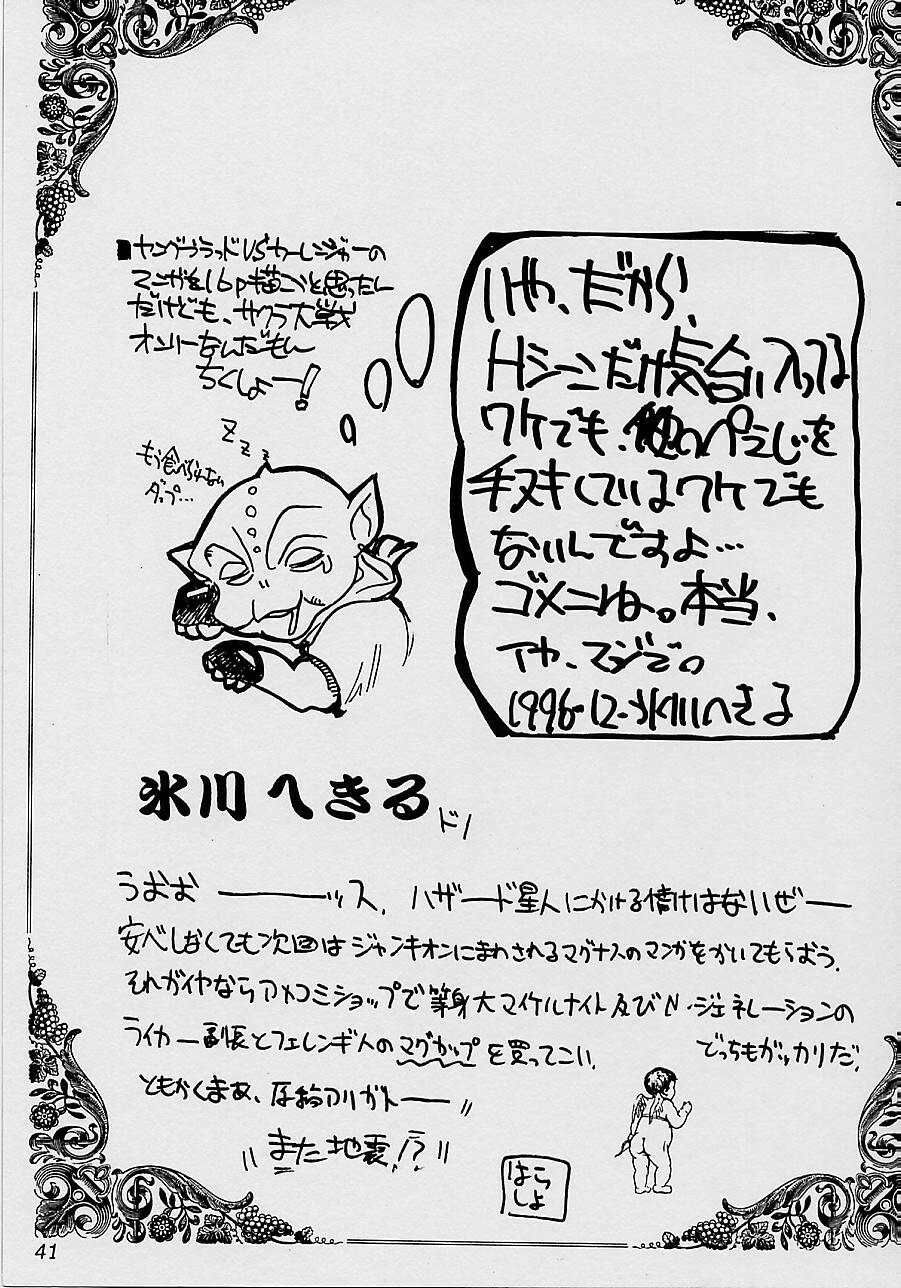 ■ヤングブラッドVSカーレンジャーの
マンガを16p描こうと思ったん
だけども、サクラ大戦
オンリーなんだもん
ちくしょー!
いや、だから、
Hシーンだけ気合い入ってる
ワケでも、他のぺえじを
手ヌキしているワケでも
ないんですよ…
ゴメンね。本当、
イヤ、マジで。
1996-12-氷川へきる
Z Z Z
もう食べられない
ダップ…
氷川へきる
ドノ
うおお———ッス、ハザード星人にかける情けはないぜー
安心しなくても次回はジャンキオンにまわされるマグナスのマンガをかいてもらおう。
それがイヤならアメコミショップで等身大マイケルナイト及びN・ジェネレーションの
ライカー副長とフェレンギ人のマグカップを買ってこい。
でっちもガッカリだ。
ともかくまあ、原稿アリガトー——〃
〃また地震!?〃
はら
しょ
41